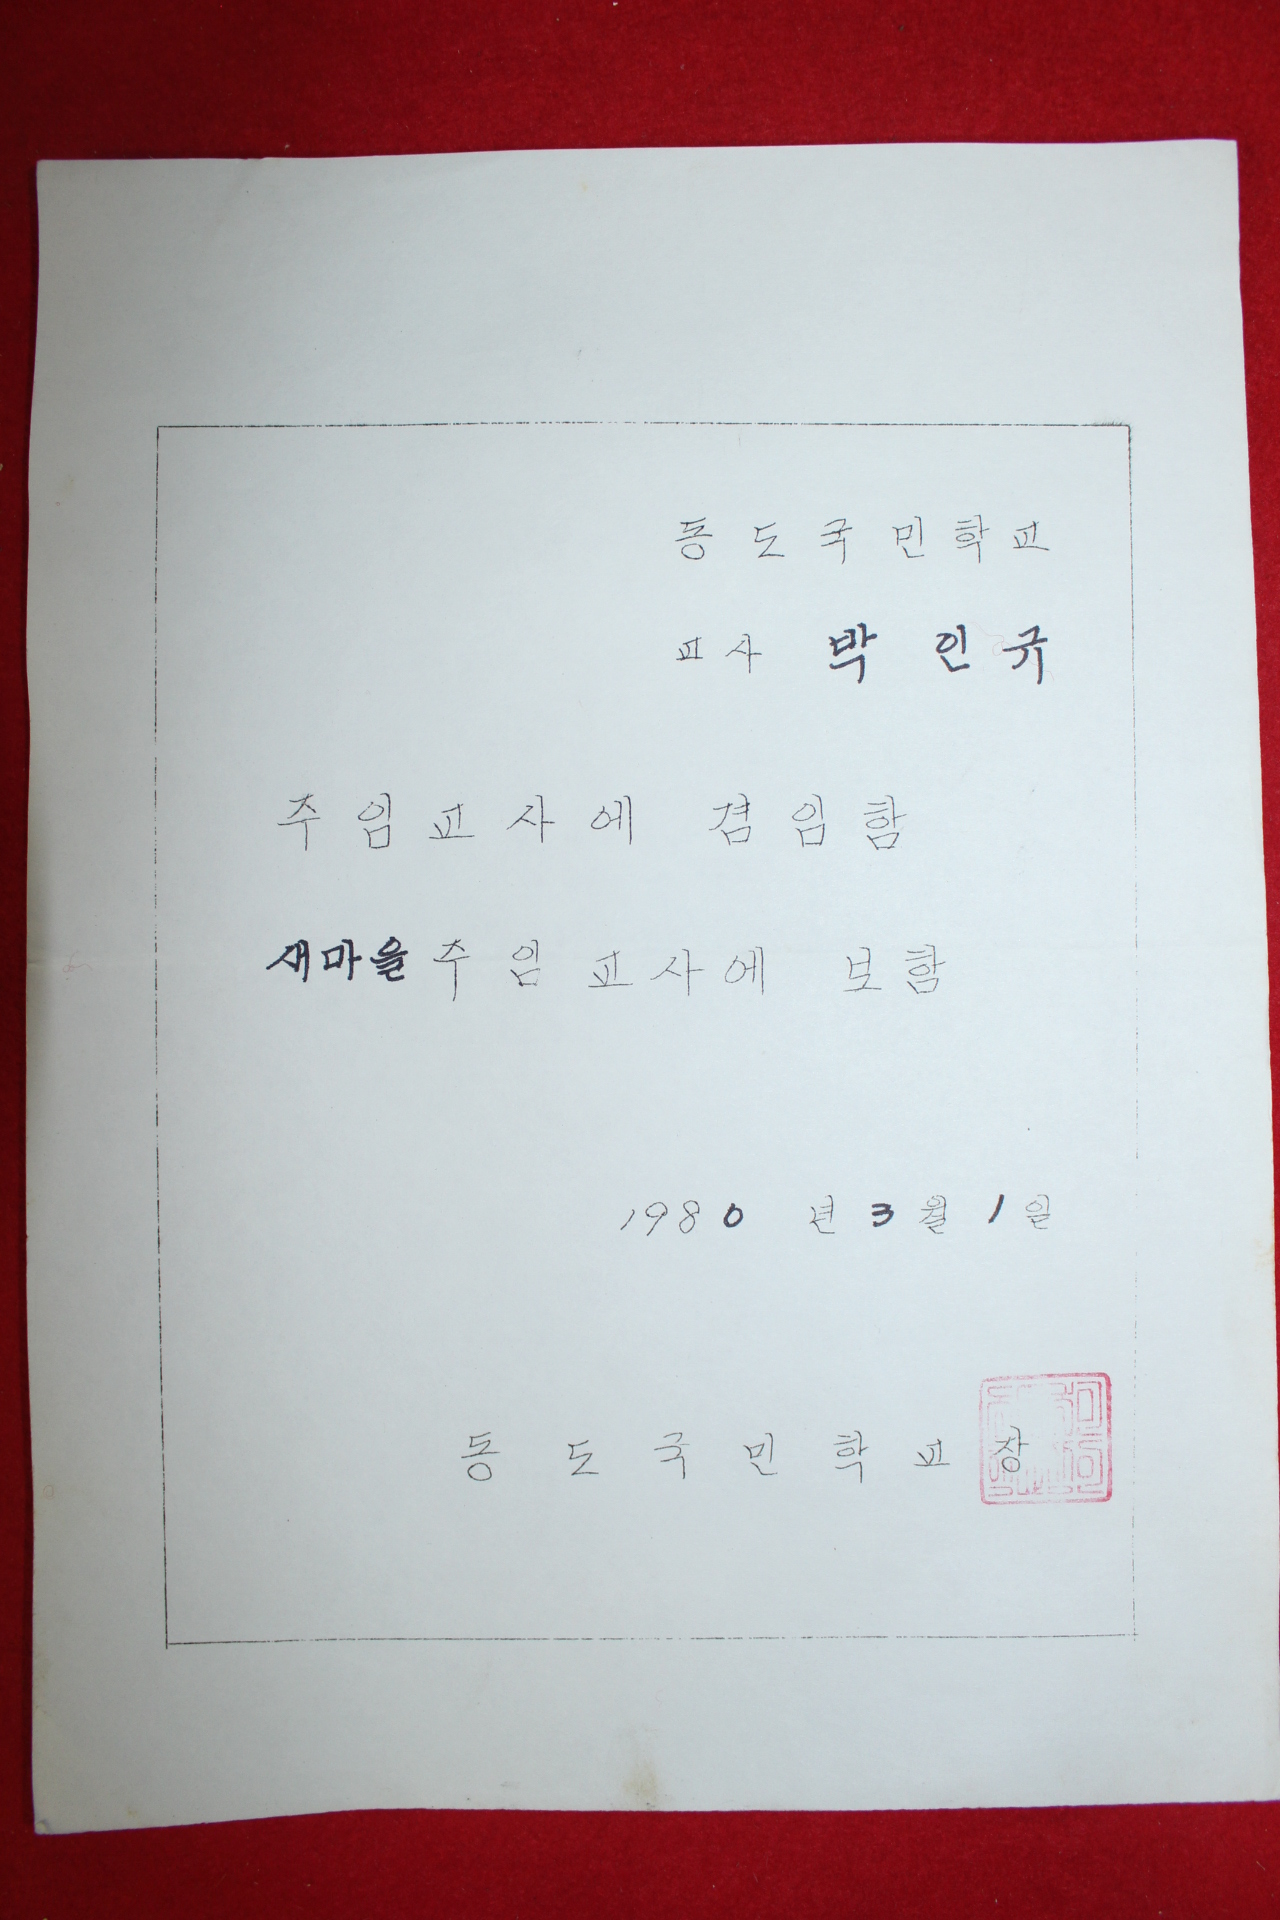 동도국민학교
교사 박인규
주임교사에 겸임함
새마을주임교사에 보함
1980년 3월 1일
동도국민학교장